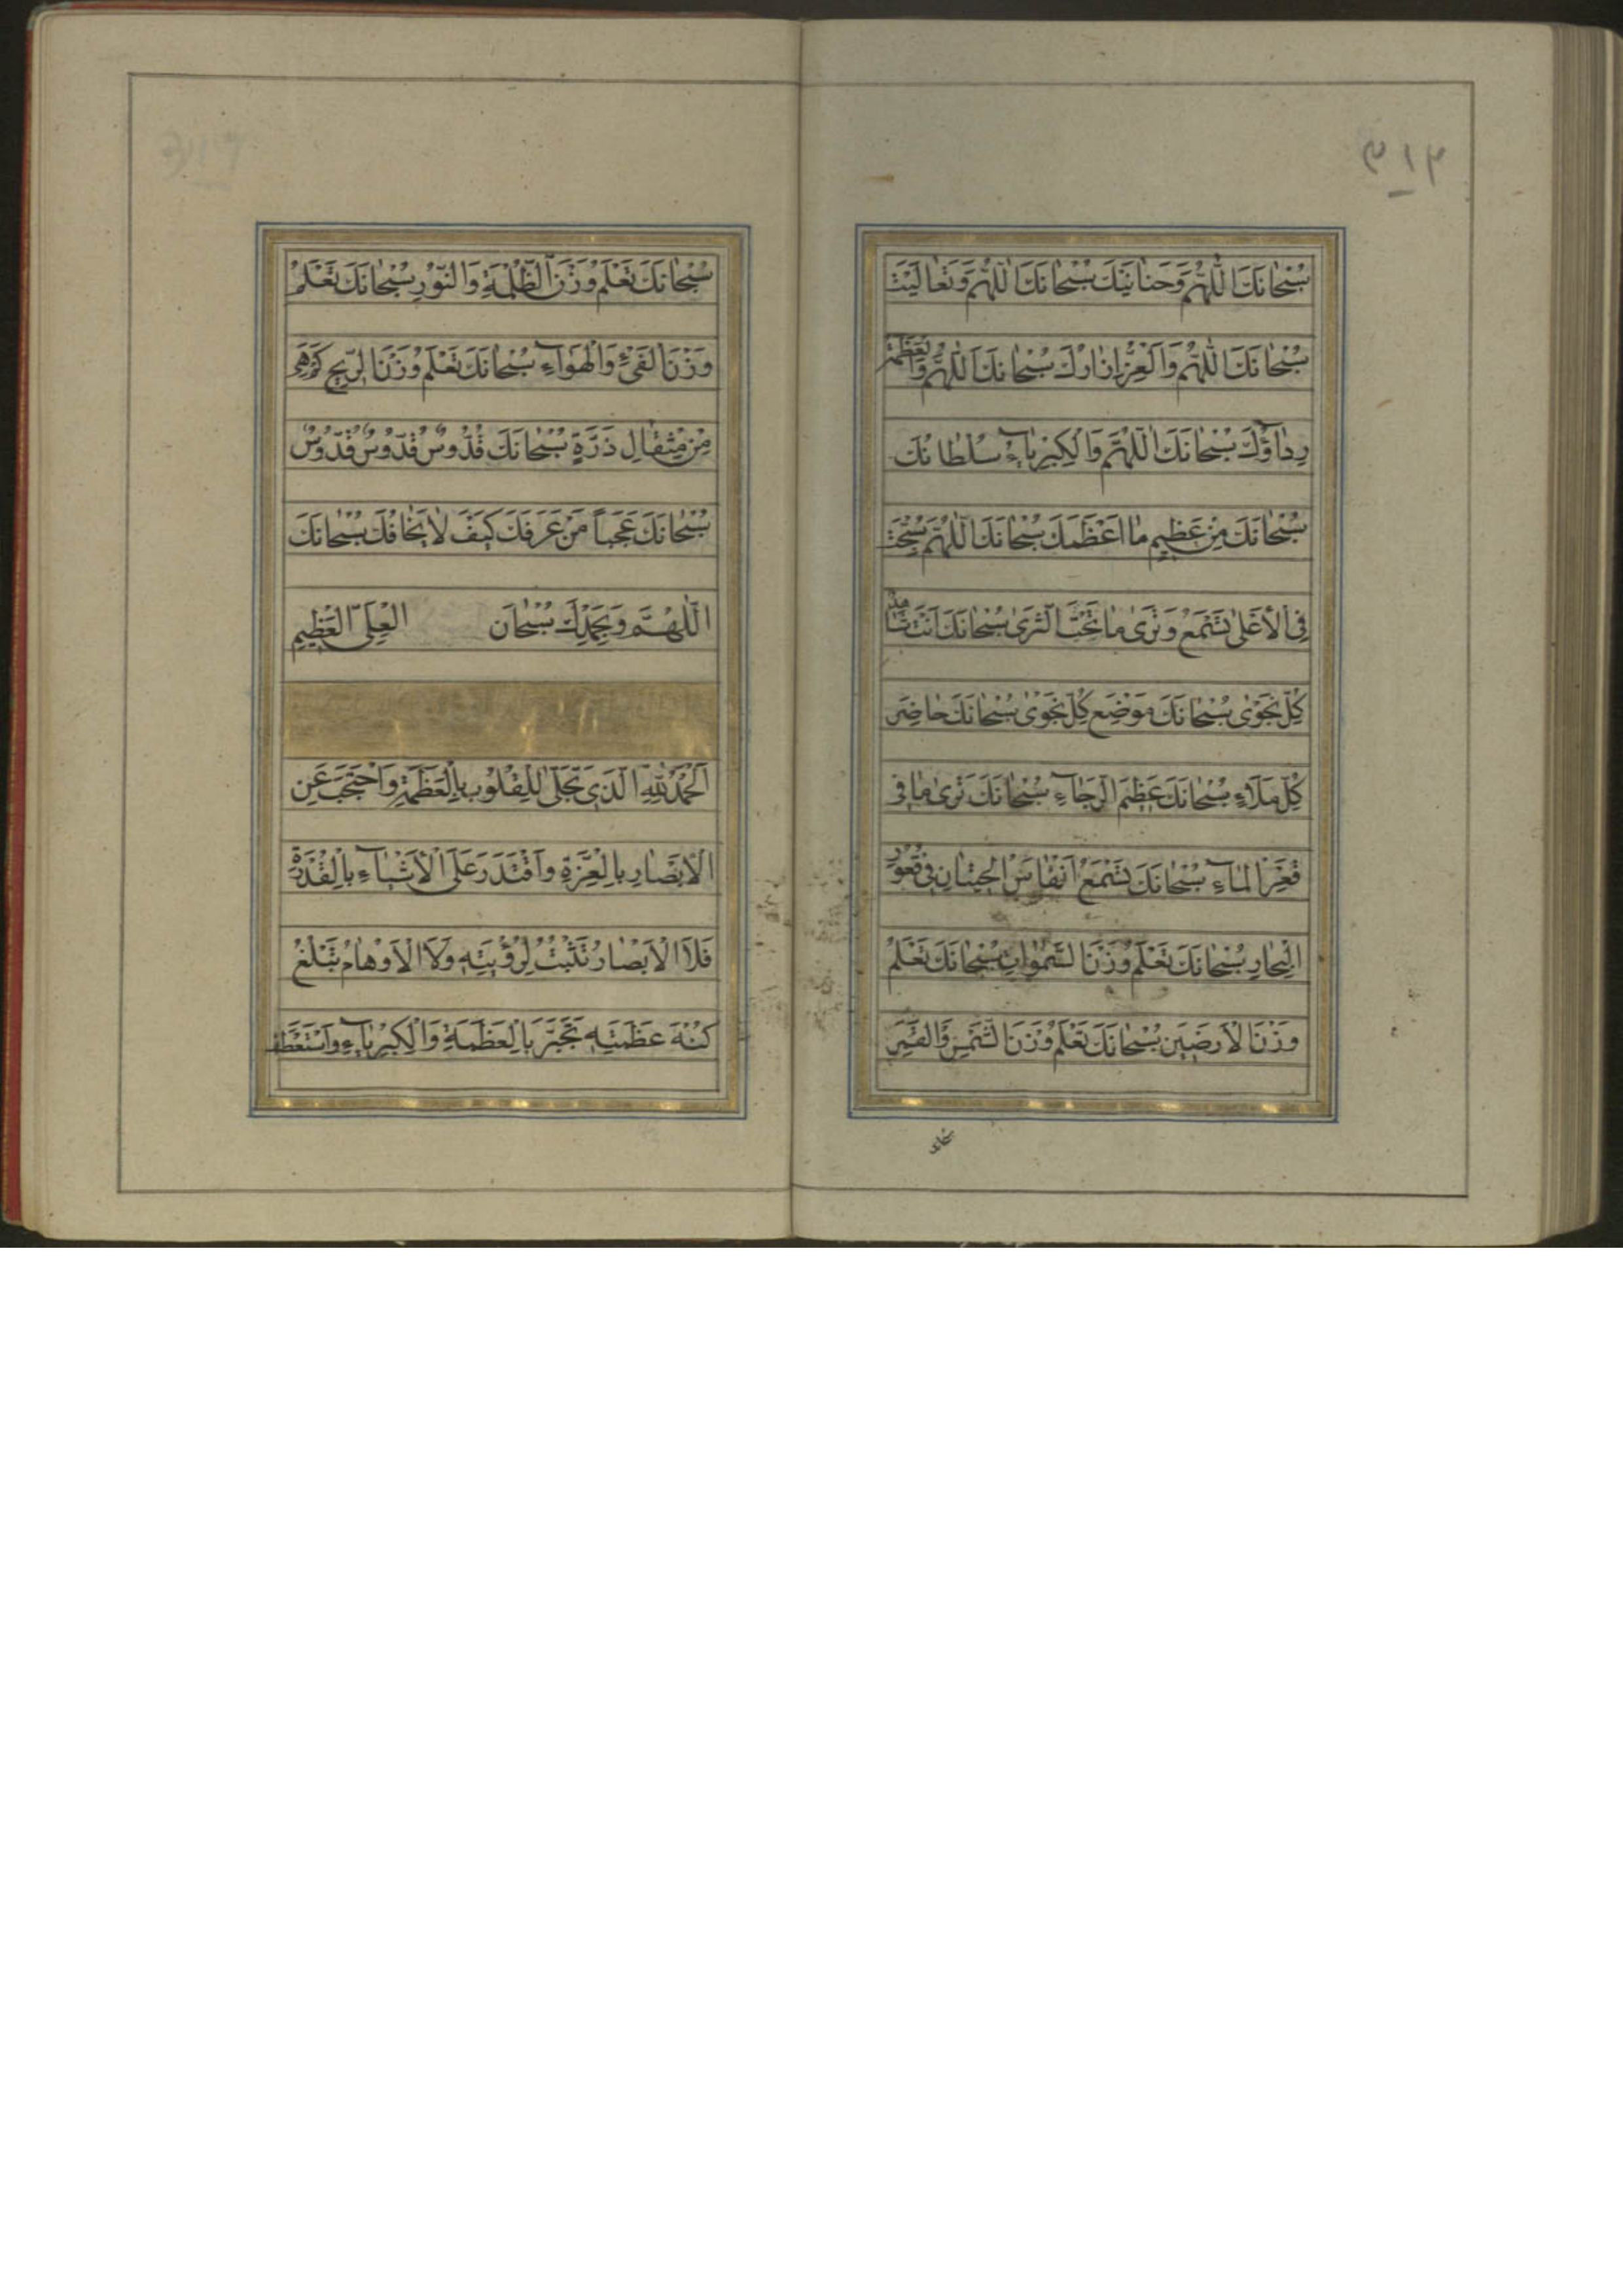 ٣١٣
سُبْحانَكَ اللّٰهُمَّ وَحَنانَيْكَ سُبْحانَكَ اللّٰهُمَّ وَتَعالَيْتَ
سُبْحانَكَ اللّٰهُمَّ وَالْعِزُّ اِزارُكَ سُبْحانَكَ اللّٰهُمَّ وَالْعَظَمَةُ
رِداؤُكَ سُبْحانَكَ اللّٰهُمَّ وَالْكِبْرِياءُ سُلْطانُكَ
سُبْحانَكَ مِنْ عَظِيمٍ ما اَعْظَمَكَ سُبْحانَكَ اللّٰهُمَّ سُبِّحْتَ
فِى الْاَعْلىٰ تَسْمَعُ وَتَرىٰ ما تَحْتَ الثَّرىٰ سُبْحانَكَ اَنْتَ شاهِدُ
كُلِّ نَجْوىٰ سُبْحانَكَ مَوْضِعَ كُلِّ نَجْوىٰ سُبْحانَكَ حاضِرَ
كُلِّ مَلَاءٍ سُبْحانَكَ عَظِيمَ الرَّجاءِ سُبْحانَكَ تَرىٰ ما فى
قَعْرِ الْماءِ سُبْحانَكَ تَسْمَعُ اَنْفاسَ الْحِيتانِ فِى قُعُورِ
الْبِحارِ سُبْحانَكَ تَعْلَمُ وَزْنَ السَّمٰواتِ سُبْحانَكَ تَعْلَمُ
وَزْنَ الْاَرَضِينَ سُبْحانَكَ تَعْلَمُ وَزْنَ الشَّمْسِ وَالْقَمَرِ
سُبْحانَكَ تَعْلَمُ وَزْنَ الظُّلْمَةِ وَالنُّورِ سُبْحانَكَ تَعْلَمُ
وَزْنَ الْفَىْءِ وَالْهَواءِ سُبْحانَكَ تَعْلَمُ وَزْنَ الرِّيحِ كَمْ هِىَ
مِنْ مِثْقالِ ذَرَّةٍ سُبْحانَكَ قُدُّوسٌ قُدُّوسٌ قُدُّوسٌ
سُبْحانَكَ عَجَباً مَنْ عَرَفَكَ كَيْفَ لا يَخافُكَ سُبْحانَكَ
اللّٰهُمَّ وَبِحَمْدِكَ سُبْحانَ الْعَلِىِّ الْعَظِيمِ
اَلْحَمْدُ لِلّٰهِ الَّذِى تَجَلّىٰ لِلْقُلُوبِ بِالْعَظَمَةِ وَاحْتَجَبَ عَنِ
الْاَبْصارِ بِالْعِزَّةِ وَاقْتَدَرَ عَلَى الْاَشْياءِ بِالْقُدْرَةِ
فَلَا الْاَبْصارُ تَثْبُتُ لِرُؤْيَتِهِ وَلَا الْاَوْهامُ تَبْلُغُ
كُنْهَ عَظَمَتِهِ تَجَبَّرَ بِالْعَظَمَةِ وَالْكِبْرِياءِ وَاسْتَعْطَفَ